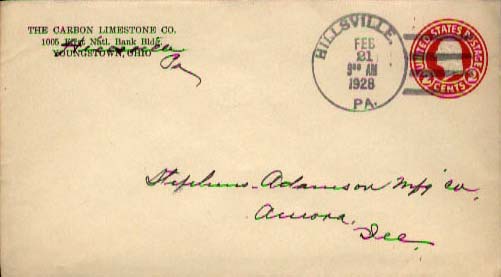 THE CARBON LIMESTONE CO.
1005 First Natl. Bank Bldg.
YOUNGSTOWN, OHIO
Hillsville
Pa
HILLSVILLE,
FEB
21
9 00 AM
1928
PA.
UNITED STATES POSTAGE
2 CENTS 2
Stephens-Adamson Mfg Co,
Aurora,
Ill,